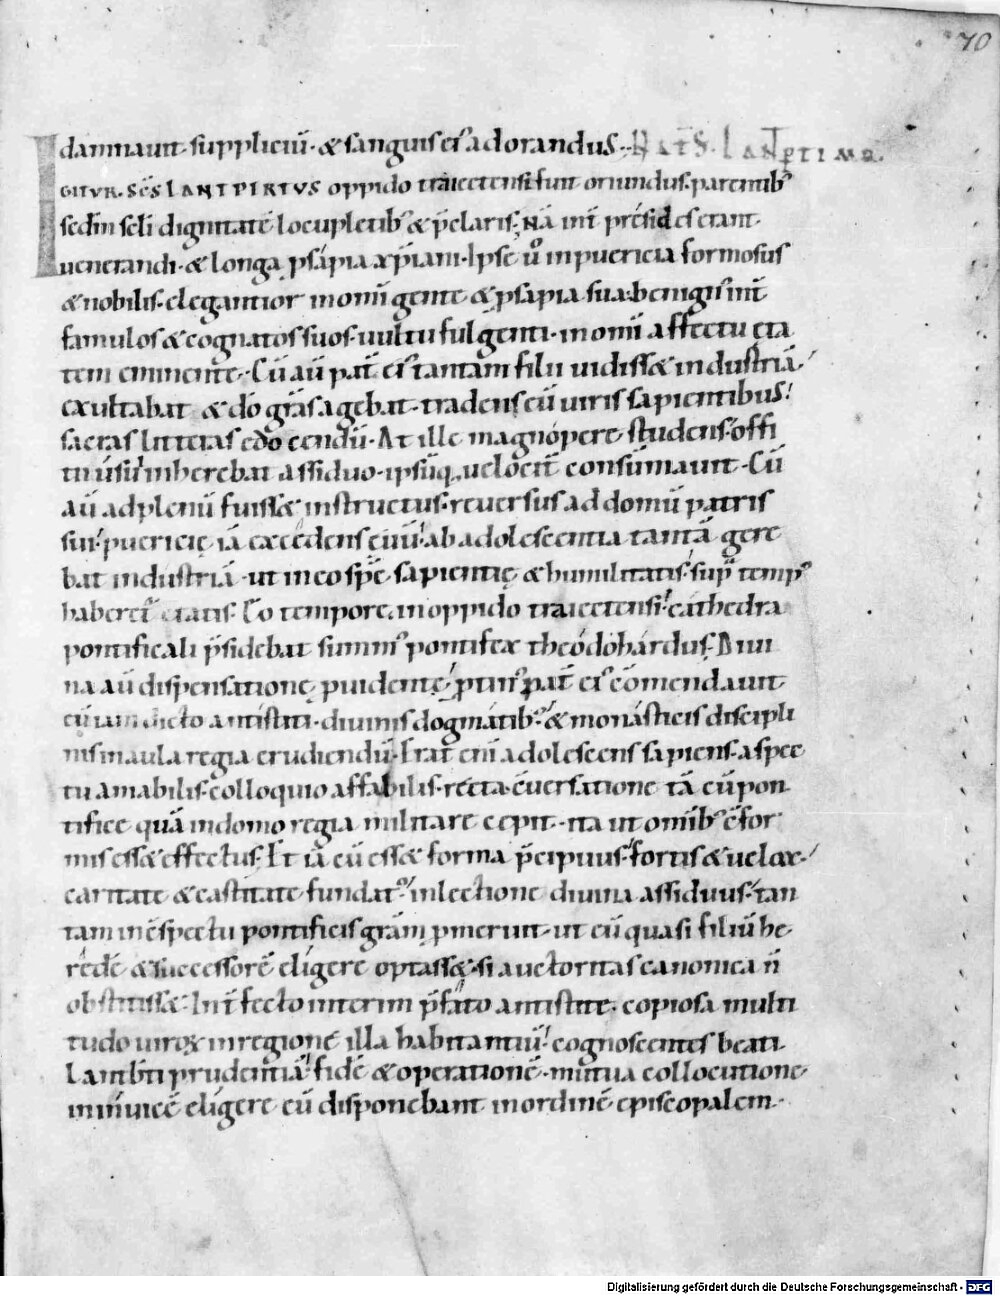 70
damnauit suppliciū · & sanguis ei᾽ adorandus · NAT̄ S̄. LANP̄TI MR̄.
IGITVR. SC̄S LANTPIRTVS oppido traiectensi fuit oriundus. parentib᾽
sedm̄ sc̄li dignitatē locupletib᾽ & p̄claris; Nā int̄ presides erant
uenerandi · & longa psapia xp̄iani · Ipse ū inpuericia formosus
& nobilis. elegantior in omni gente & psapia sua. benign᾽ int̄
famulos & cognatos suos. uultu fulgenti · in omni affectu eta
tem eminente · Cū aū pat̄ ei᾽ tantam filii uidiss& industriā
exultabat & dō grās agebat · tradens eū uiris sapientibus
sacras litteras edocendū · At ille magnopere studens. offi
tii usui inherebat assiduo · ipsūq, uelocit̄ consūmauit · Cū
aū ad plenū fuiss& instructus. reuersus ad domū patris
sui. puericię iā excedens euū. ab adolescentia tantā gere
bat industriā · ut in eo spēs sapientię & humilitatis. sup̄ temp᾽
haberet᾽ etatis. Eo tempore in oppido traiectensi cathedra
pontificali p̄sidebat summ᾽ pontifex theodohardus. Diui
na aū dispensatione puidente ptin᾽ pat̄ ei᾽ cōmendauit
eū iam dicto antistiti · diuinis dogmatib᾽ & monasticis discipli
nis in aula regia erudiendū. Erat enī adolescens sapiens. aspec
tu amabilis. colloquio affabilis. recta cūersatione tā cū pon
tifice quā in domo regia militare cepit · ita ut omīb᾽ cōfor
mis ess& effectus. Et iā cū ess& forma p̄cipuus. fortis & uelox.
caritate & castitate fundat᾽ in lectione diuina assiduus. tan
tam in cōspectu pontificis grām pmeruit. ut eū quasi filiū he
redē & successorē eligere optass&. si auctoritas canonica n̄
obstitiss&. Int̄fecto interim p̄fato antistite. copiosa multi
tudo uirorū in regione illa habitantiū. cognoscentes beati
Lamb̄ti prudentiā. fidē & operationē. mutua collocutione
in inuicē eligere eū disponebant in ordinē episcopalem ·
Digitalisierung gefördert durch die Deutsche Forschungsgemeinschaft - DFG